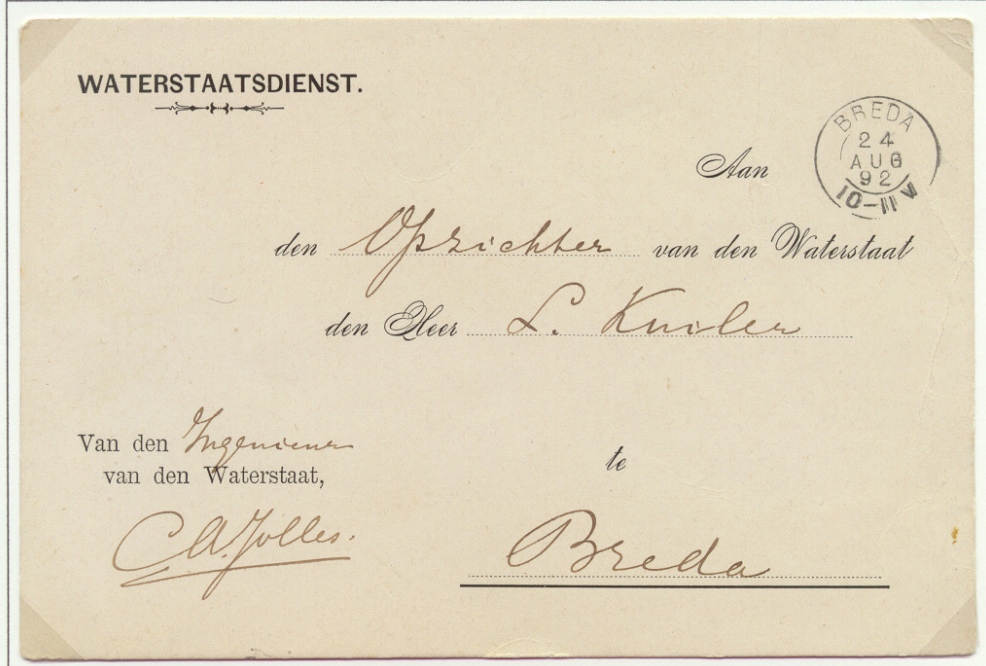 WATERSTAATSDIENST.
BREDA
24
AUG
92
10-11 V
Aan
den Opzichter van den Waterstaat
den Heer L. Kuiler
Van den Ingenieur
van den Waterstaat,
te
C.A. Jolles.
Breda